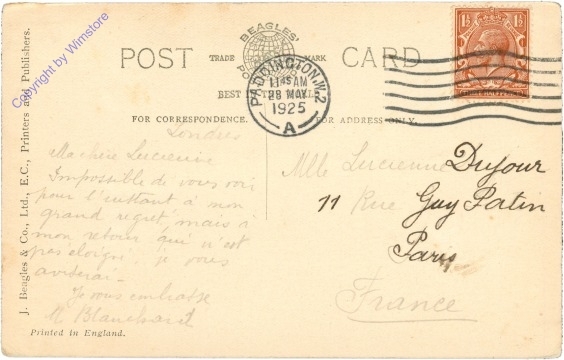 Copyright by Wimstore
J. Beagles & Co., Ltd., E.C., Printers and Publishers.
POST CARD
BEAGLES'
TRADE MARK
BEST IN
PADDINGTON.W.2
11 45 AM
28 MAY
1925
A
FOR CORRESPONDENCE.
FOR ADDRESS ONLY.
Londres
Ma chère Lucienne
Impossible de vous voir
pour l'instant à mon
grand regret mais à
mon retour, qui n'est
pas éloigné, je vous
aviserai -
Je vous embrasse
M Blanchard
Mlle Lucienne Dufour
11 Rue Guy Patin
Paris
France
Printed in England.